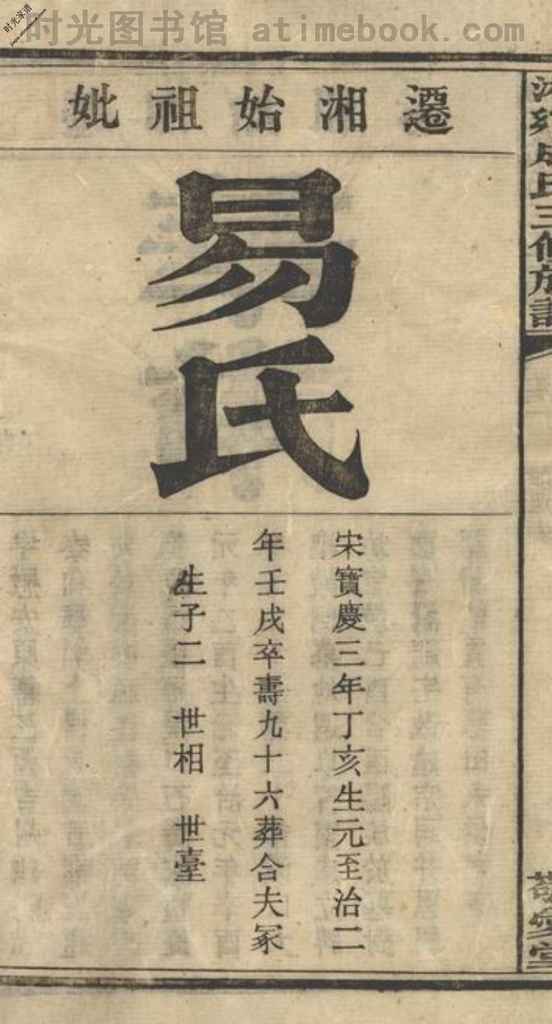 时光图书馆 atimebook.com
时光家谱
遷湘始祖妣
易氏
宋寶慶三年丁亥生元至治二
年壬戌卒壽九十六葬合夫冢
生子二 世相 世臺
氏三修族譜